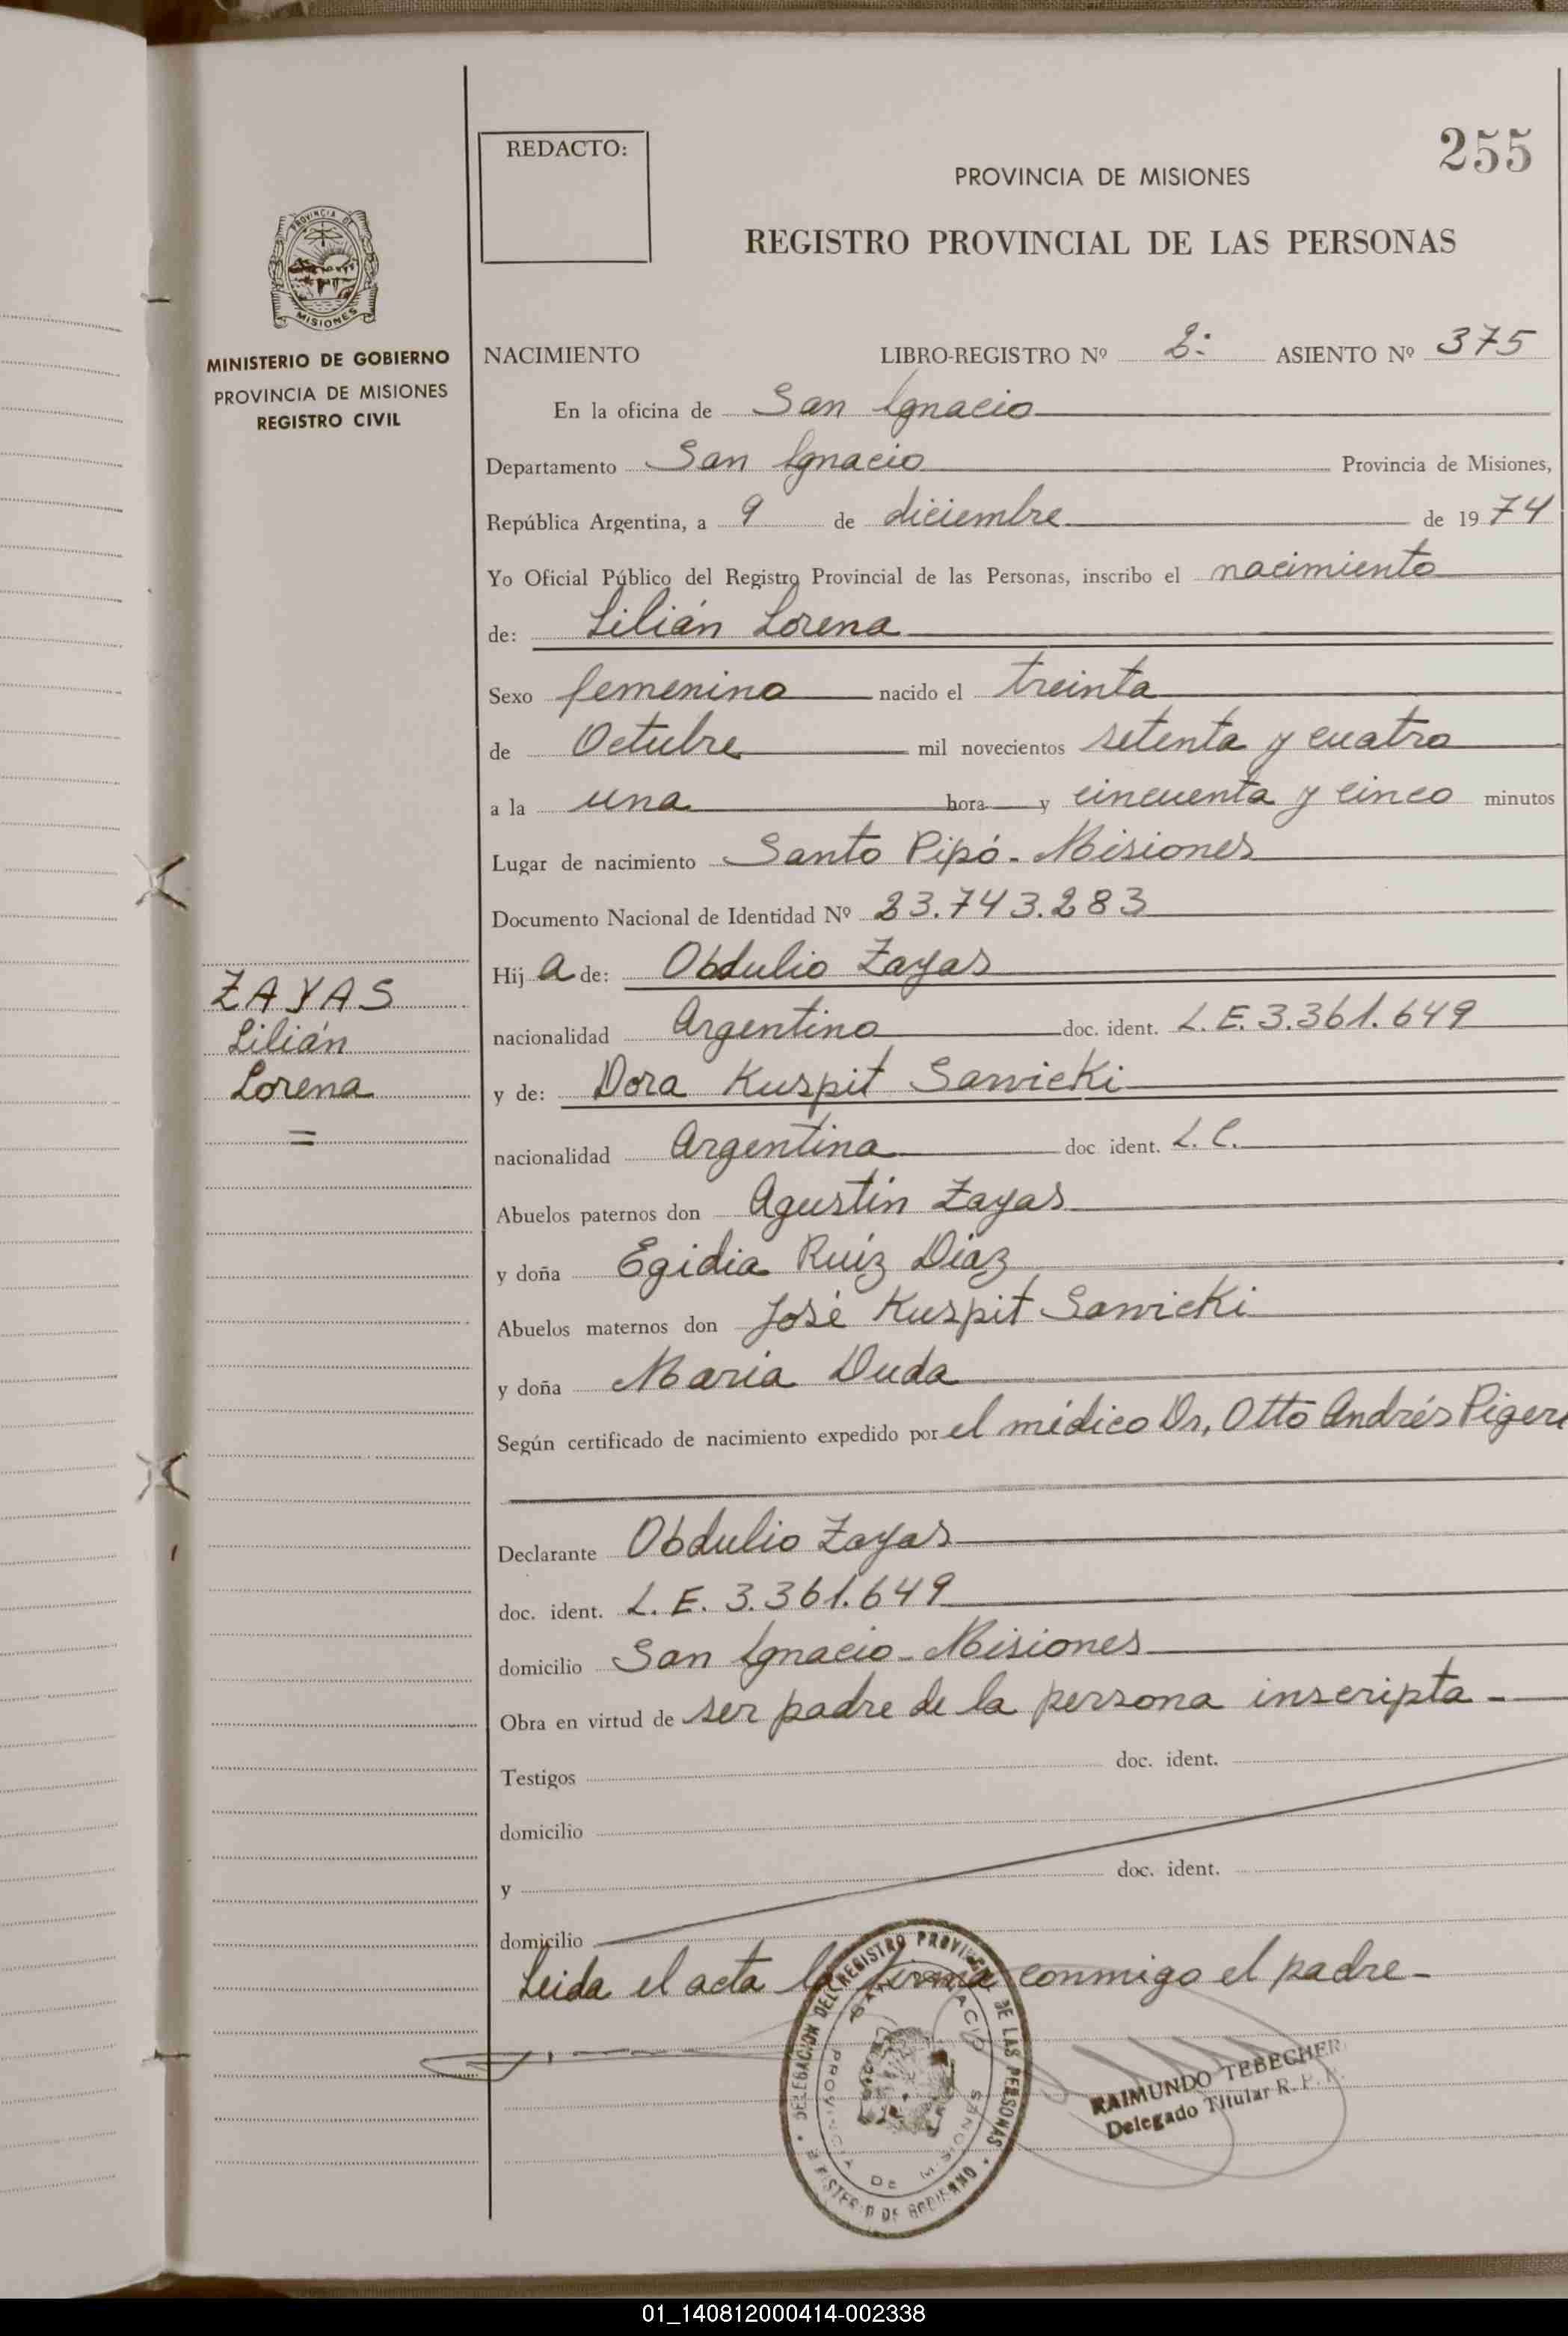 REDACTO:
255
PROVINCIA DE MISIONES
REGISTRO PROVINCIAL DE LAS PERSONAS
PROVINCIA DE
MISIONES
MINISTERIO DE GOBIERNO
PROVINCIA DE MISIONES
REGISTRO CIVIL
NACIMIENTO LIBRO-REGISTRO Nº 2: ASIENTO Nº 375
En la oficina de San Ignacio
Departamento San Ignacio Provincia de Misiones,
República Argentina, a 9 de diciembre de 1974
Yo Oficial Público del Registro Provincial de las Personas, inscribo el nacimiento
de: Lilián Lorena
Sexo femenino nacido el treinta
de Octubre mil novecientos setenta y cuatro
a la una hora y cincuenta y cinco minutos
Lugar de nacimiento Santo Pipó - Misiones
Documento Nacional de Identidad Nº 23.743.283
Hija de: Obdulio Zayas
ZAYAS
Lilián
Lorena
=
nacionalidad Argentino doc. ident. L.E. 3.361.649
y de: Dora Kuspit Sawicki
nacionalidad Argentina doc ident. L.C.
Abuelos paternos don Agustín Zayas
y doña Egidia Ruíz Díaz
Abuelos maternos don José Kuspit Sawicki
y doña María Duda
Según certificado de nacimiento expedido por el médico Dr, Otto Andrés
Declarante Obdulio Zayas
doc. ident. L.E. 3.361.649
domicilio San Ignacio - Misiones
Obra en virtud de ser padre de la persona inscripta -
Testigos doc. ident.
domicilio
y doc. ident.
domicilio
Leida el acta la firma conmigo el padre -
DELEGACION DEL REGISTRO PROVINCIAL DE LAS PERSONAS
SAN IGNACIO
PROVINCIA DE MISIONES
MINISTERIO DE GOBIERNO
RAIMUNDO TEBECHER
Delegado Titular R. P. P.
01_140812000414-002338